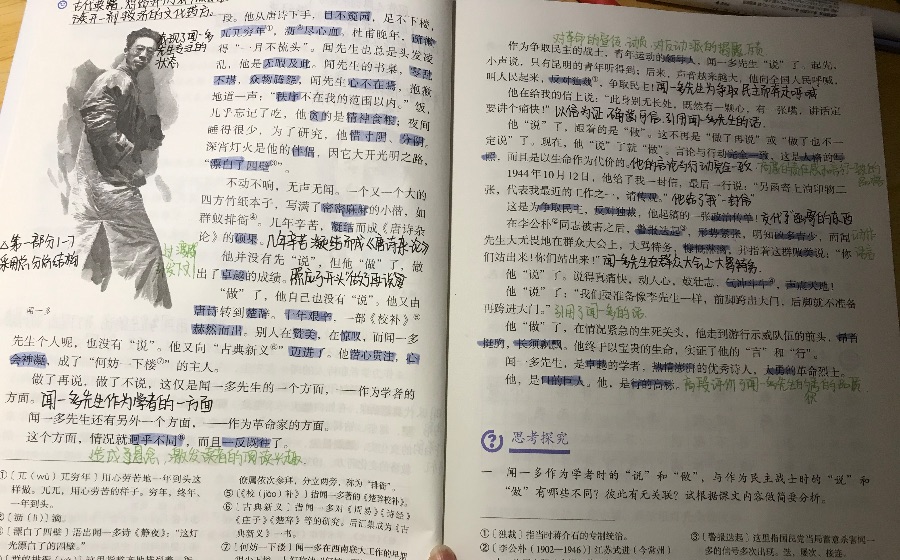 段。他从唐诗下手，目不窥园，足不下楼，
兀兀穷年①，沥②尽心血。杜甫晚年，疏懒
得“一月不梳头”。闻先生也总是头发凌
乱，他是无暇及此。闻先生的书桌，零乱
不堪，众物腾怨，闻先生心不在焉，抱歉
地道一声：“秩序不在我的范围以内。”饭，
几乎忘记了吃，他贪的是精神食粮；夜间
睡得很少，为了研究，他惜寸阴、分阴。
深宵灯火是他的伴侣，因它大开光明之路，
“漂白了四壁③”。
不动不响，无声无闻。一个又一个大的
四方竹纸本子，写满了密密麻麻的小楷，如
群蚁排衙④。几年辛苦，凝结而成《唐诗杂
论》的硕果。
几年辛苦凝结而成《唐诗杂论》
他并没有先“说”，但他“做”了，做
出了卓越的成绩。
“做”了，他自己也没有“说”。他又由
唐诗转到楚辞。十年艰辛，一部《校补》⑤
赫然而出。别人在赞美，在惊叹，而闻一多
先生个人呢，也没有“说”。他又向“古典新义⑥”迈进了。他潜心贯注，心
会神凝，成了“何妨一下楼⑦”的主人。
做了再说，做了不说，这仅是闻一多先生的一个方面，——作为学者的
方面。闻一多先生作为学者的一方面
闻一多先生还有另外一个方面，——作为革命家的方面。
这个方面，情况就迥乎不同⑧，而且一反既往了。
造成了悬念，激发读者的阅读兴趣.
闻一多
①〔兀（wù）兀穷年〕用心劳苦地一年到头这
样做。兀兀，用心劳苦的样子。穷年，终年、
一年到头。
②〔沥（lì）〕滴。
③〔漂白了四壁〕语出闻一多诗《静夜》：“这灯
光漂白了的四壁。”
僚属依次参拜，分立两旁，称为“排衙”。
⑤〔《校（jiào）补》〕指闻一多著的《楚辞校补》。
⑥〔古典新义〕指闻一多对《周易》《诗经》
《庄子》《楚辞》等的研究，后汇集成为《古
典新义》一书。
作为争取民主的战士，青年运动的领导人，闻一多先生“说”了。起先，
小声说，只有昆明的青年听得到；后来，声音越来越大，他向全国人民呼喊，
叫人民起来，反对独裁①，争取民主！闻一多先生为争取民主而奔走呼喊
他在给我的信上说：“此身别无长处，既然有一颗心，有一张嘴，讲话定
要讲个痛快！”
他“说”了，跟着的是“做”。这不再是“做了再说”或“做了也不一
定说”了。现在，他“说”了就“做”。言论与行动完全一致，这是人格的写
照，而且是以生命作为代价的。他的言论与行动完全一致
1944年10月12日，他给了我一封信，最后一行说：“另函寄上油印物二
张，代表我最近的工作之一，请传观。”
这是为争取民主，反对独裁，他起稿的一张政治传单！
在李公朴②同志被害之后，警报迭起③，形势紧张，明知凶多吉少，而闻
先生大无畏地在群众大会上，大骂特务，慷慨淋漓，并指着这群败类说：“你
们站出来！你们站出来！”闻一多先生在群众大会上大骂特务
他“说”了。说得真痛快，动人心，鼓壮志，气冲斗牛④，声震天地！
他“说”了：“我们要准备像李先生一样，前脚跨出大门，后脚就不准备
再跨进大门。”引用了闻一多的话.
他“做”了，在情况紧急的生死关头，他走到游行示威队伍的前头，昂首
挺胸，长须飘飘。他终于以宝贵的生命，实证了他的“言”和“行”。
闻一多先生，是卓越的学者，热情澎湃的优秀诗人，大勇的革命烈士。
他，是口的巨人。他，是行的高标。
思考探究
一 闻一多作为学者时的“说”和“做”，与作为民主战士时的“说”和
“做”有哪些不同？彼此有无关联？试根据课文内容做简要分析。
①〔独裁〕指当时蒋介石的专制统治。
②〔李公朴（1902—1946）〕江苏武进（今常州）
③〔警报迭起〕这里指国民党当局蓄意杀害闻一
多的信号多次出现。迭，屡次，接连。